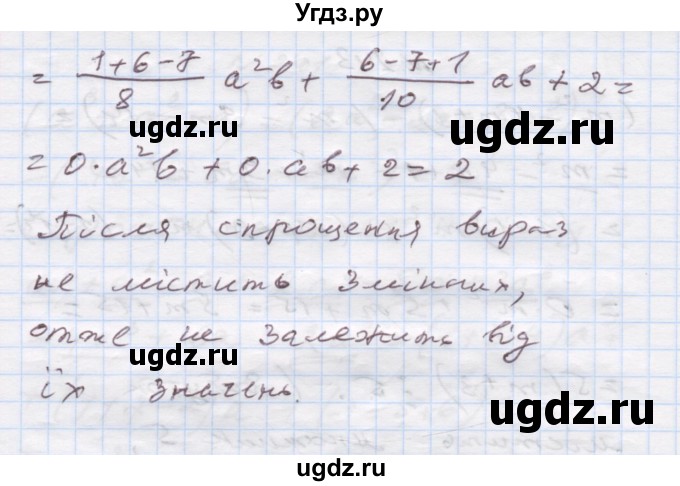 Угдз.ру
= \frac{1+6-7}{8} a²b + \frac{6-7+1}{10} ab + 2 =
= 0·a²b + 0·ab + 2 = 2
Після спрощення вираз
не містить змінних,
отже не залежить від
їх значень.
ugdz.ru
ugdz.ru
ugdz.ru
ugdz.ru
ugdz.ru
ugdz.ru